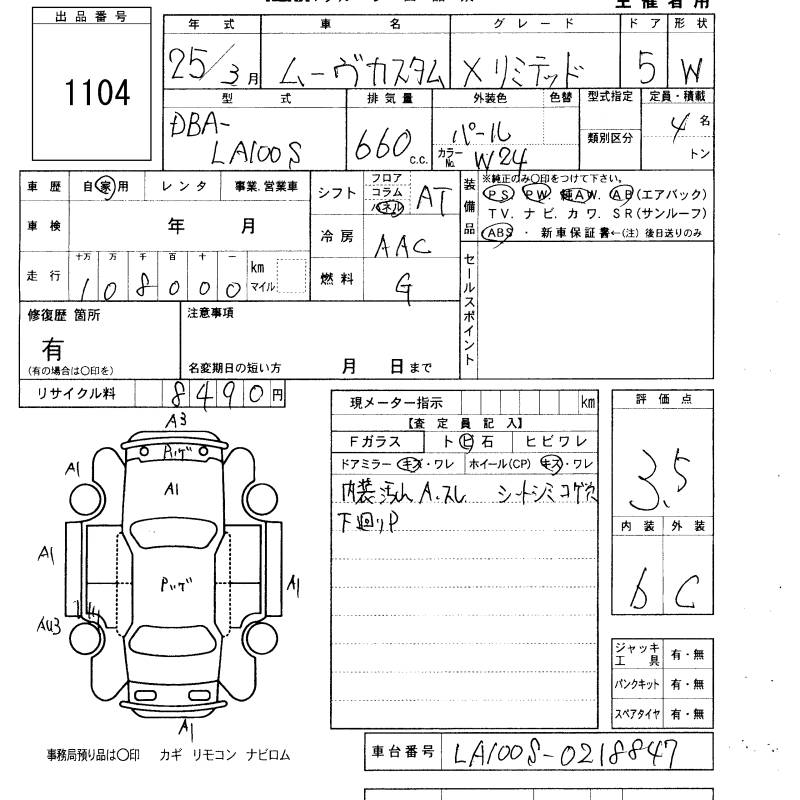 主催者用
出品番号
1104
年式 車名 グレード ドア 形状
25/3月 ムーヴカスタム X リミテッド 5 W
型式 排気量 外装色 色替 型式指定 定員・積載
DBA-LA100S 660c.c. パール カラーNo. W24 類別区分 4名 トン
車歴 自家用 レンタ 事業.営業車
シフト フロア コラム パネル AT
装備品 ※純正のみ〇印をつけて下さい。
PS. PW. 純AW. AB(エアバック)
TV. ナビ. カワ. SR(サンルーフ)
ABS ・ 新車保証書←(注) 後日送りのみ
車検 年 月
冷房 AAC
走行 十万 万 千 百 十 一
108000 km マイル
燃料 G
セールスポイント
修復歴 箇所 注意事項
有
(有の場合は〇印を) 名変期日の短い方 月 日まで
リサイクル料 8490円
現メーター指示 km
【査定員記入】
Fガラス トビ石 ヒビワレ
ドアミラー キズ・ワレ ホイール(CP) キズ・ワレ
内装汚れ A.スレ シートシミコゲ穴
下廻りP
評価点
3.5
内装 外装
b C
A3
Pハゲ
A1
A1
A1
Pハゲ
A1
AU3
A1
ジャッキ工具 有・無
パンクキット 有・無
スペアタイヤ 有・無
事務局預り品は〇印 カギ リモコン ナビロム
車台番号 LA100S-0218847